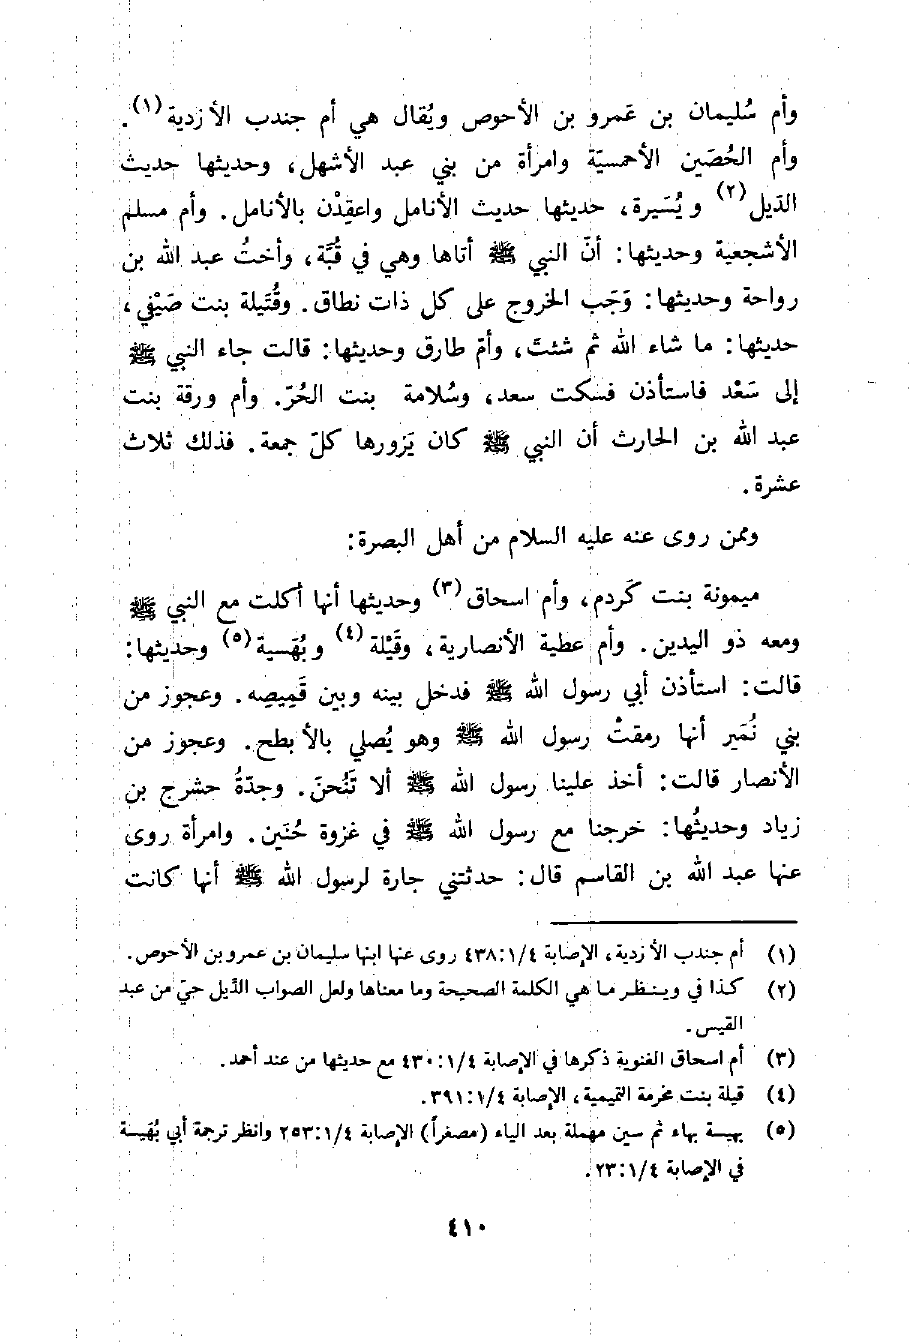 وأم سُليمان بن عَمرو بن الأحوص ويُقال هي أم جندب الأزدية(١).
وأم الحُصَين الأحمسيّة وامرأة من بني عبد الأشهل، وحديثها حديث
الذيل(٢) ويُسَيرة، حديثها حديث الأنامل واعقِدْن بالأنامل. وأم مسلم
الأشجعية وحديثها: أنّ النبي ﷺ أتاها وهي في قُبَّة، وأختُ عبد الله بن
رواحة وحديثها: وَجَب الخروج على كل ذات نطاق. وقُتَيلة بنت صَيْفي،
حديثها: ما شاء الله ثم شئتَ، وأمّ طارق وحديثها: قالت جاء النبي ﷺ
إلى سَعْد فاستأذن فسكت سعد، وسُلامة بنت الحُرّ. وأم ورقة بنت
عبد الله بن الحارث أن النبي ﷺ كان يَزورها كلّ جمعة. فذلك ثلاث
عشرة.
وممن روى عنه عليه السلام من أهل البصرة:
ميمونة بنت كَردم، وأم اسحاق(٣) وحديثها أنها أكلت مع النبي ﷺ
ومعه ذو اليدين. وأم عطية الأنصارية، وقَيْلة(٤) وبُهَسية(٥) وحديثها:
قالت: استأذن أبي رسول الله ﷺ فدخل بينه وبين قَميصِه. وعجوز من
بني نُمَير أنها رمقتْ رسول الله ﷺ وهو يُصلي بالأبطح. وعجوز من
الأنصار قالت: أخذ علينا رسول الله ﷺ ألا تَنُحنَ. وجدّةُ حشرج بن
زياد وحديثُها: خرجنا مع رسول الله ﷺ في غزوة حُنَين. وامرأة روى
عنها عبد الله بن القاسم قال: حدثتني جارة لرسول الله ﷺ أنها كانت
(١) أم جندب الأزدية، الإصابة ٤/١:٤٣٨ روى عنها ابنها سليمان بن عمرو بن الأحوص.
(٢) كذا في وينظر ما هي الكلمة الصحيحة وما معناها ولعل الصواب الدَّيل حيّ من عبد
القيس.
(٣) أم اسحاق الغنوية ذكرها في الإصابة ٤/١:٤٣٠ مع حديثها من عند أحمد.
(٤) قيلة بنت مخرمة التميمية، الإصابة ٤/١:٣٩١.
(٥) بهيسة بهاء ثم سين مهملة بعد الياء (مصغراً) الإصابة ٤/١:٢٥٣ وانظر ترجمة أبي بُهَيسة
في الإصابة ٤/١:٢٣.
٤١٠